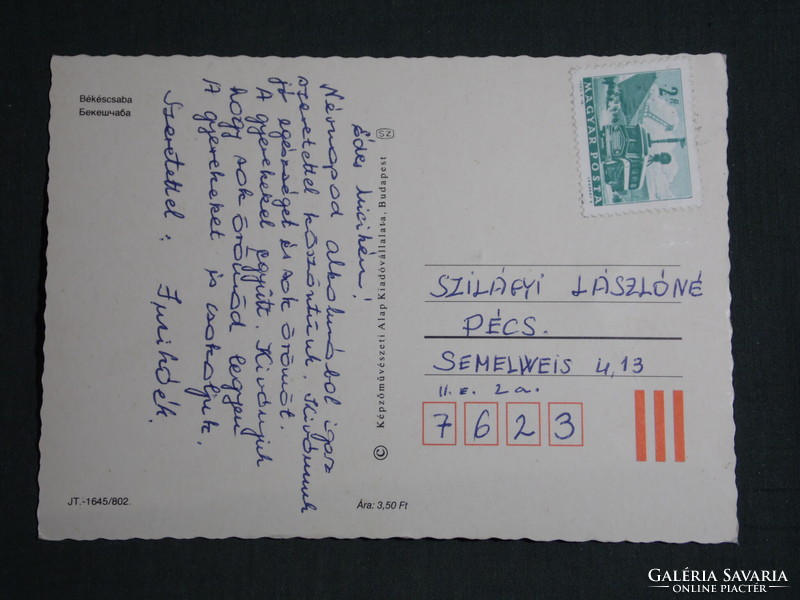 Békéscsaba
Бекешчаба
Édes Micikém!
Névnapod alkalmából igaz
szeretettel köszöntünk. Kívánunk
jó egészséget és sok örömöt.
A gyerekekel együtt. Kívánjuk
hogy sok örömöd legyen
A gyerekeket is csokoljuk.
Szeretettel:
JT.-1645/802.
Ára: 3,50 Ft
© Képzőművészeti Alap Kiadóvállalata, Budapest SZ
2 Ft
MAGYAR POSTA
SZILÁGYI LÁSZLÓNÉ
PÉCS.
SEMELWEIS U, 13
II. E. 2 a.
7 6 2 3
GALÉRIA SAVARIA
ONLINE PIACTÉR